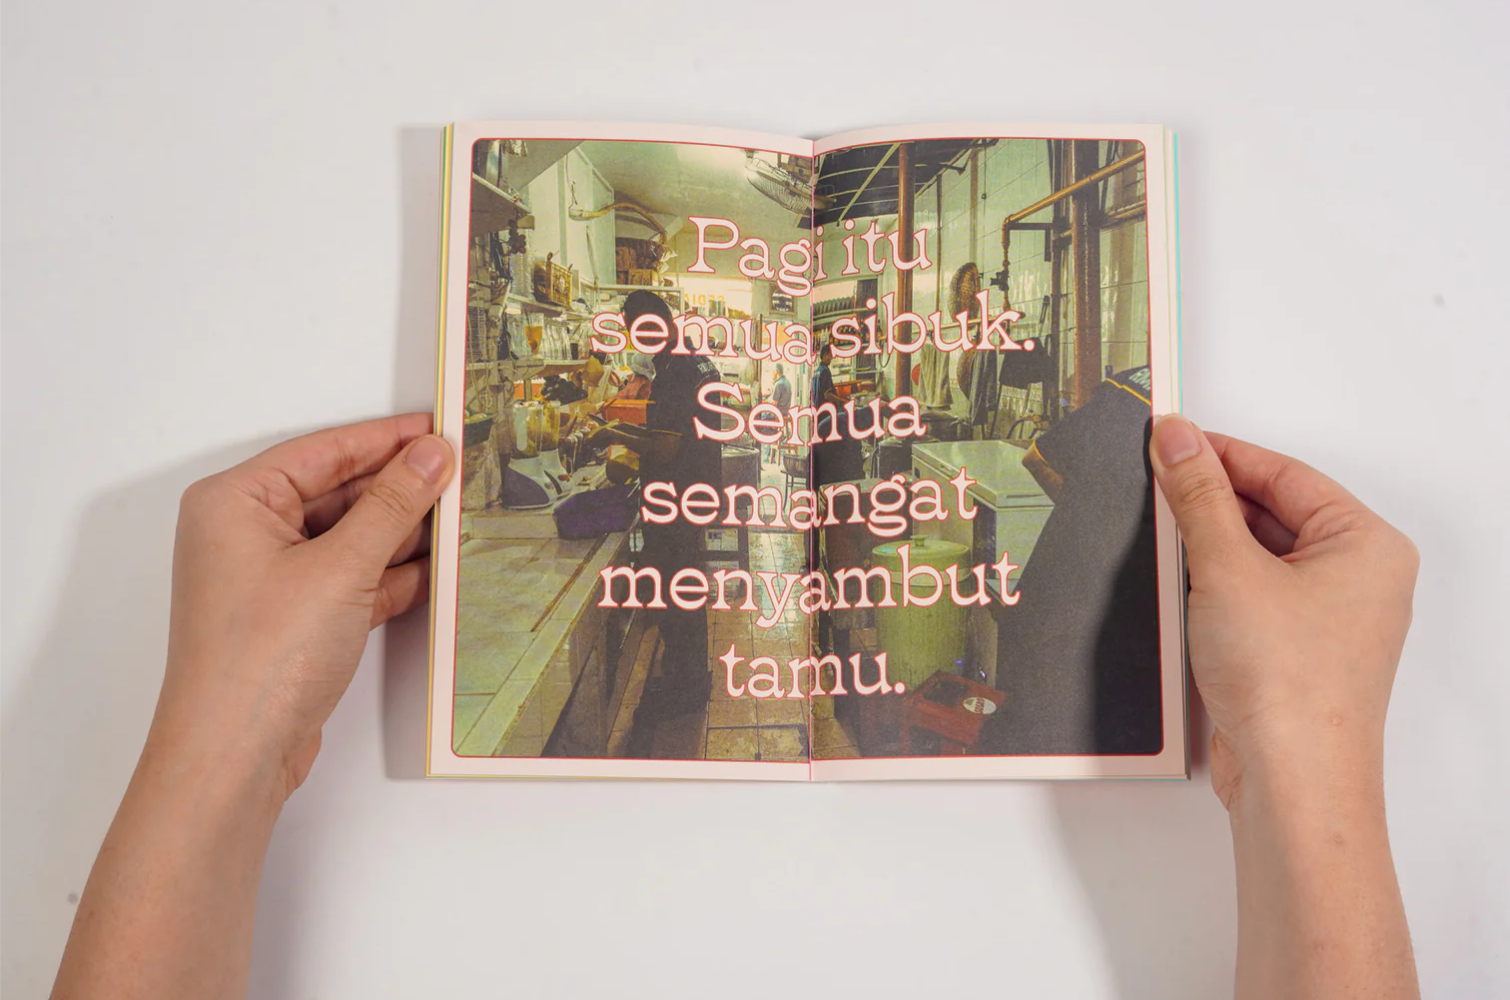 Pagi itu
semua sibuk.
Semua
semangat
menyambut
tamu.